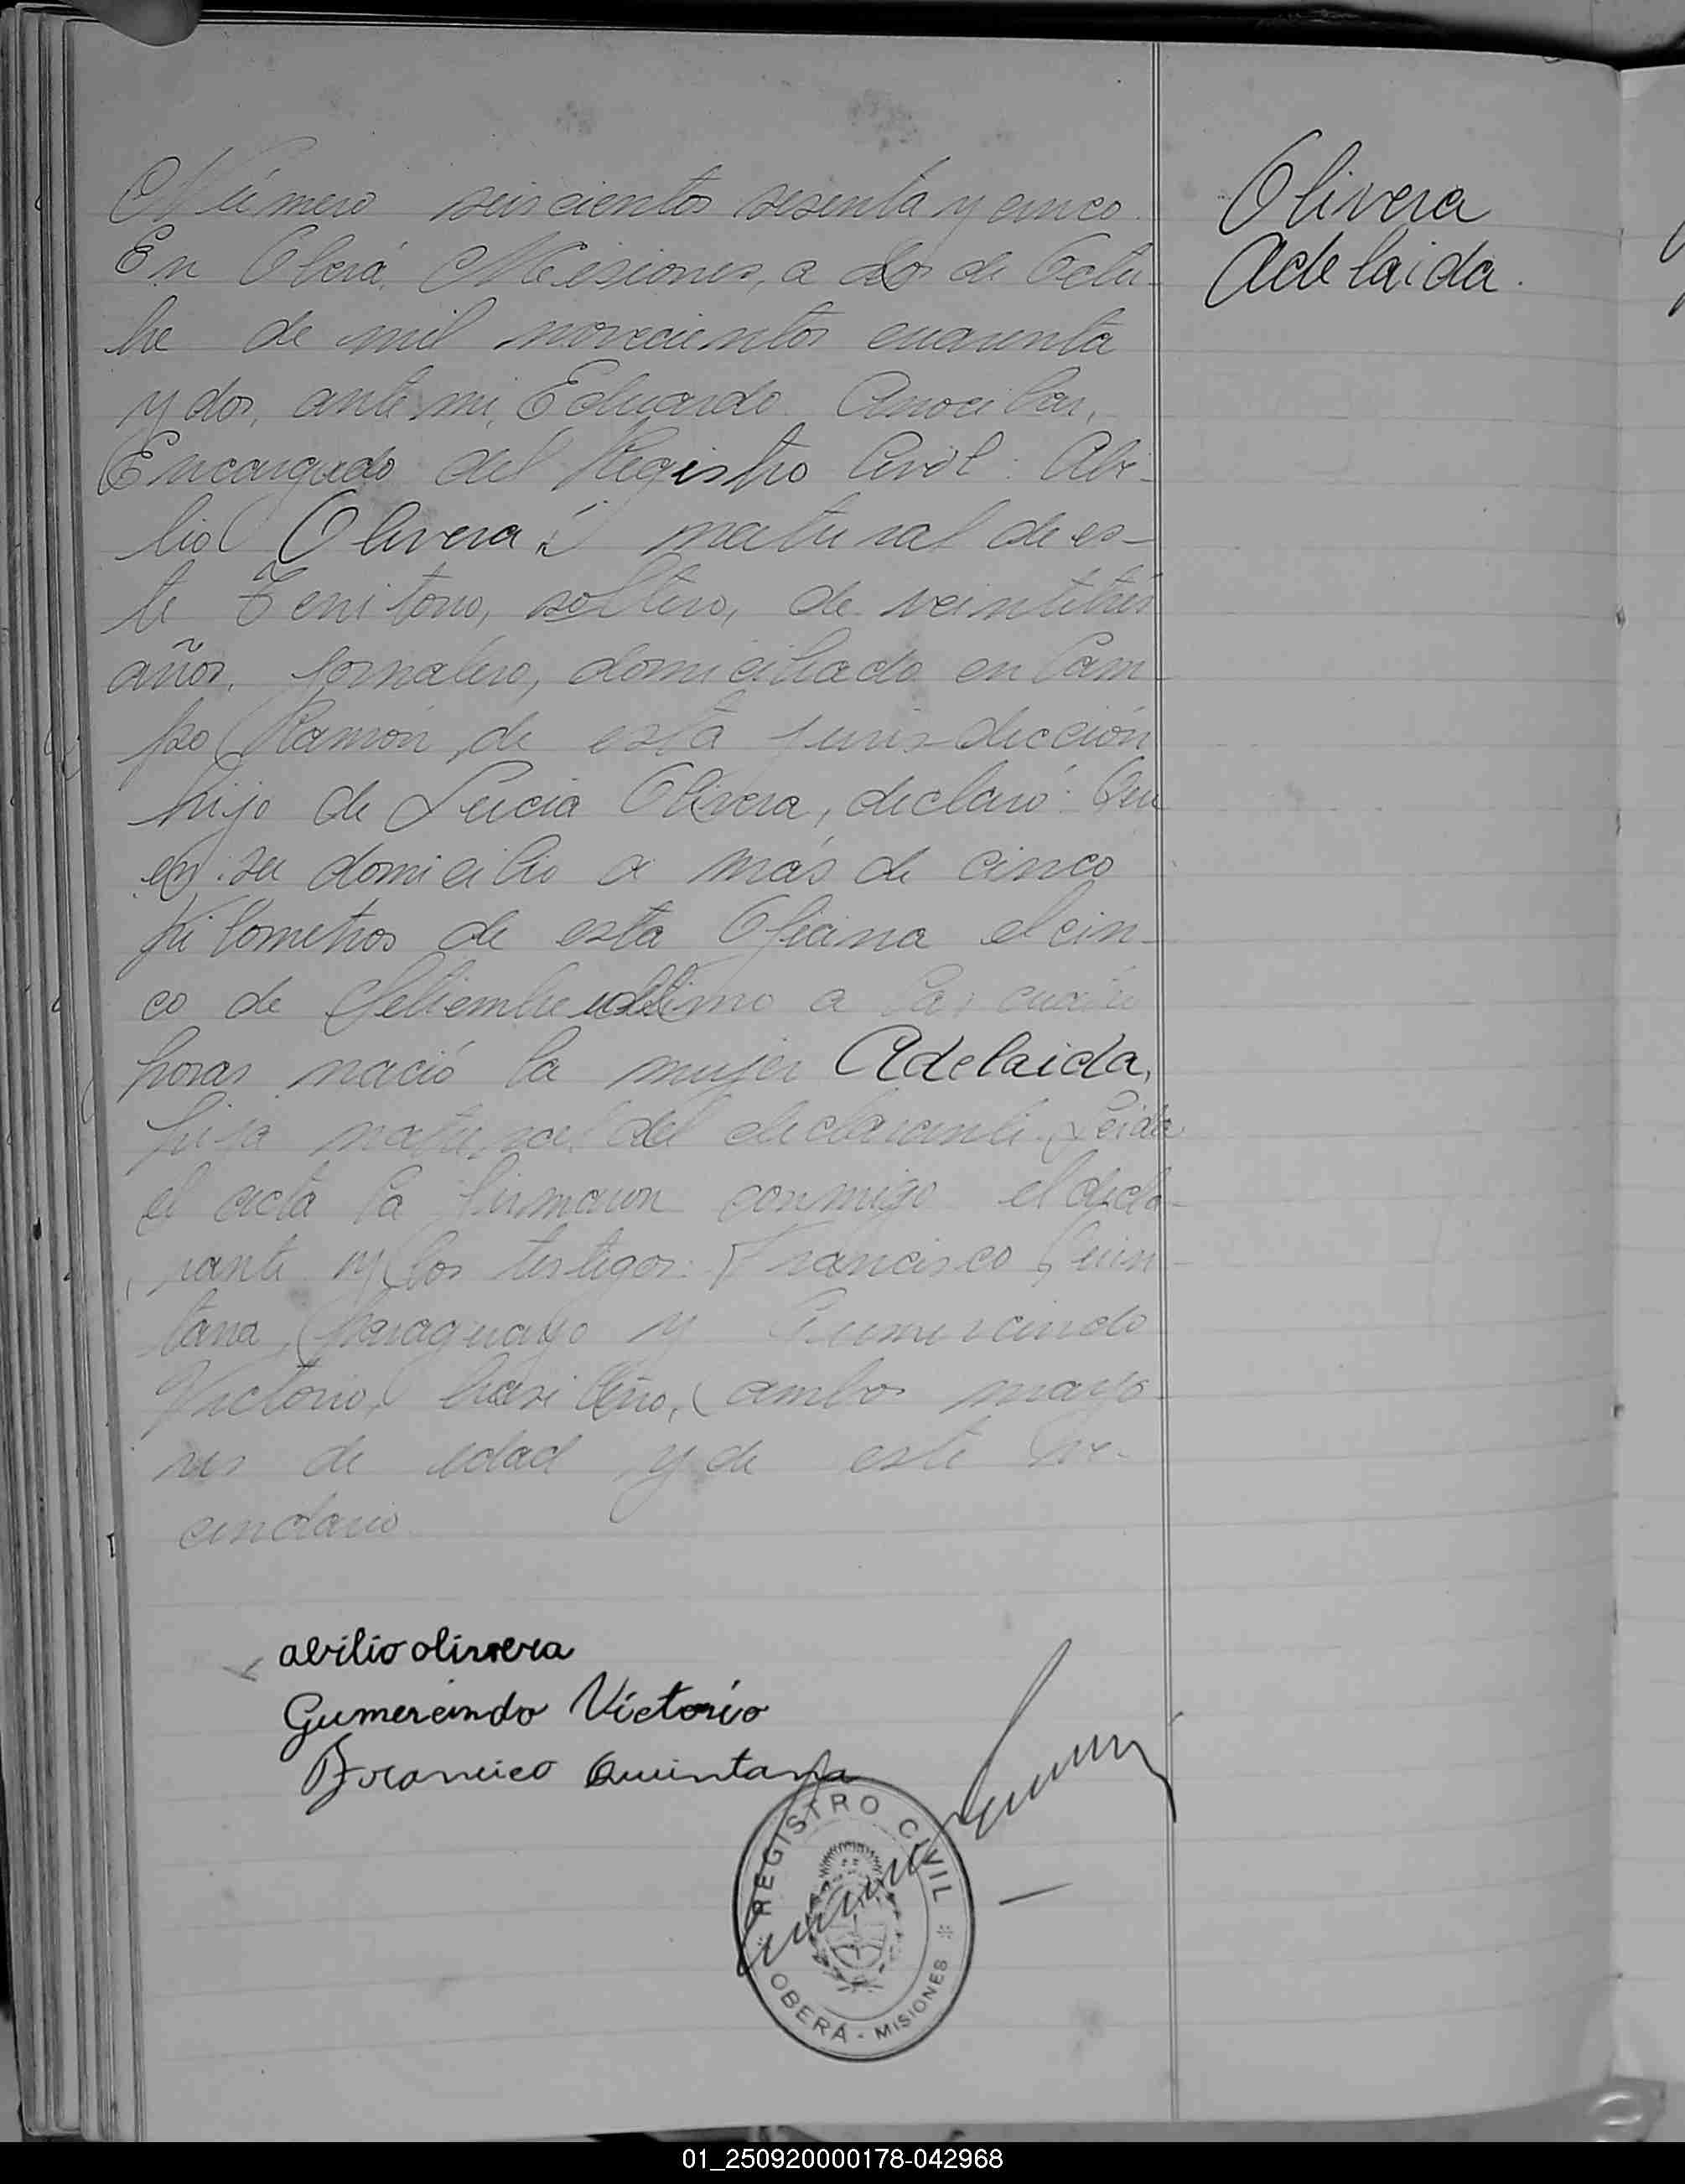 Número seiscientos sesenta y cinco.
En Oberá, Misiones, a dos de Octu-
bre de mil novecientos cuarenta
y dos, ante mi, Eduardo Arocibar,
Encargado del Registro Civil: Abi-
lio Olivera, natural de es-
te Territorio, soltero, de veintitrés
años, jornalero, domiciliado en Cam-
po Ramón, de esta jurisdicción
hijo de Lucia Olivera, declaró: Que
en su domicilio a más de cinco
kilometros de esta Oficina el cin-
co de Setiembre ultimo a las cuatro
horas nació la mujer Adelaida,
hija natural del declarante. Leida
el acta la firmaron conmigo el decla-
rante y los testigos: Francisco Quin-
tana, paraguayo y Gumercindo
Victorio, brasileño, ambos mayo-
res de edad y de este ve-
cindario
Olivera
Adelaida.
abilio olivera
Gumercindo Victorio
Francisco Quintana
REGISTRO CIVIL
OBERÁ - MISIONES
01_250920000178-042968